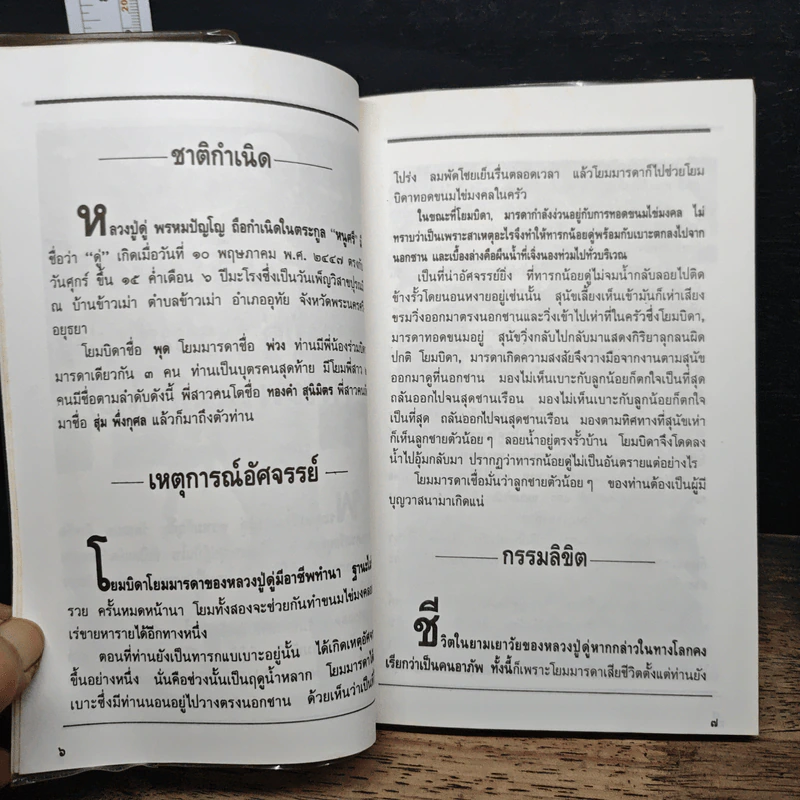 ชาติกำเนิด
หลวงปู่ดู่ พรหมปัญโญ ถือกำเนิดในตระกูล "หนูศรี"
ชื่อว่า "ดู่" เกิดเมื่อวันที่ ๑๐ พฤษภาคม พ.ศ. ๒๔๔๗ ตรงกับ
วันศุกร์ ขึ้น ๑๕ ค่ำเดือน ๖ ปีมะโรงซึ่งเป็นวันเพ็ญวิสาขปุรณมี
ณ บ้านข้าวเม่า ตำบลข้าวเม่า อำเภออุทัย จังหวัดพระนครศรี
อยุธยา
โยมบิดาชื่อ พุด โยมมารดาชื่อ พ่วง ท่านมีพี่น้องร่วมบิดา
มารดาเดียวกัน ๓ คน ท่านเป็นบุตรคนสุดท้าย มีโยมพี่สาว ๒
คนมีชื่อตามลำดับดังนี้ พี่สาวคนโตชื่อ ทองคำ สุนิมิตร พี่สาวคน
มาชื่อ สุ่ม พึ่งกุศล แล้วก็มาถึงตัวท่าน
เหตุการณ์อัศจรรย์
โยมบิดาโยมมารดาของหลวงปู่ดู่มีอาชีพทำนา
รวย ครั้นหมดหน้านา โยมทั้งสองจะช่วยกันทำขนมไข่มงคล
เร่ขายหารายได้อีกทางหนึ่ง
ตอนที่ท่านยังเป็นทารกแบเบาะอยู่นั้น ได้เกิดเหตุ
ขึ้นอย่างหนึ่ง นั่นคือช่วงนั้นเป็นฤดูน้ำหลาก โยมมารดา
เบาะซึ่งมีท่านนอนอยู่ไปวางตรงนอกชาน ด้วยเห็นว่าเป็น
๖
โปร่ง ลมพัดโชยเย็นรื่นตลอดเวลา แล้วโยมมารดาก็ไปช่วยโยม
บิดาทอดขนมไข่มงคลในครัว
ในขณะที่โยมบิดา, มารดากำลังง่วนอยู่กับการทอดขนมไข่มงคล ไม่
ทราบว่าเป็นเพราะสาเหตุอะไรจึงทำให้ทารกน้อยดู่พร้อมกับเบาะตกลงไปจาก
นอกชาน และเบื้องล่างคือผืนน้ำที่เจิ่งนองท่วมไปทั่วบริเวณ
เป็นที่น่าอัศจรรย์ยิ่ง ที่ทารกน้อยดู่ไม่จมน้ำกลับลอยไปติด
ข้างรั้วโดยนอนหงายอยู่เช่นนั้น สุนัขเลี้ยงเห็นเข้ามันก็เห่าเสียง
ขรมวิ่งออกมาตรงนอกชานและวิ่งเข้าไปเห่าที่ในครัวซึ่งโยมบิดา,
มารดาทอดขนมอยู่ สุนัขวิ่งกลับไปกลับมาแสดงกิริยาลุกลนผิด
ปกติ โยมบิดา, มารดาเกิดความสงสัยจึงวางมือจากงานตามสุนัข
ออกมาดูที่นอกชาน มองไม่เห็นเบาะกับลูกน้อยก็ตกใจเป็นที่สุด
ถลันออกไปจนสุดชานเรือน มองไม่เห็นเบาะกับลูกน้อยก็ตกใจ
เป็นที่สุด ถลันออกไปจนสุดชานเรือน มองตามทิศทางที่สุนัขเห่า
ก็เห็นลูกชายตัวน้อยๆ ลอยน้ำอยู่ตรงรั้วบ้าน โยมบิดาจึงโดดลง
น้ำไปอุ้มกลับมา ปรากฏว่าทารกน้อยดู่ไม่เป็นอันตรายแต่อย่างไร
โยมมารดาเชื่อมั่นว่าลูกชายตัวน้อยๆ ของท่านต้องเป็นผู้มี
บุญวาสนามาเกิดแน่
กรรมลิขิต
ชีวิตในยามเยาวัยของหลวงปู่ดู่หากกล่าวในทางโลกคง
เรียกว่าเป็นคนอาภัพ ทั้งนี้ก็เพราะโยมมารดาเสียชีวิตตั้งแต่ท่านยัง
๗